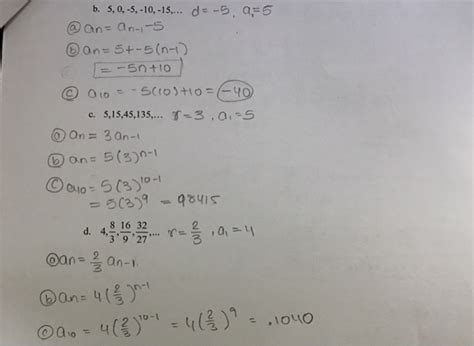 b. 5, 0, -5, -10, -15,... d = -5, a₁ = 5
ⓐ an = an-1 -5
ⓑ an = 5 + -5(n-1)
= -5n+10
ⓒ a10 = -5(10)+10 = -40
c. 5,15,45,135,... r = 3, a₁ = 5
ⓐ an = 3an-1
ⓑ an = 5(3)^n-1
ⓒ a10 = 5(3)^10-1
= 5(3)^9 = 98415
d. 4, 8/3, 16/9, 32/27,... r = 2/3, a₁ = 4
ⓐ an = 2/3 an-1
ⓑ an = 4(2/3)^n-1
ⓒ a10 = 4(2/3)^10-1 = 4(2/3)^9 = .1040